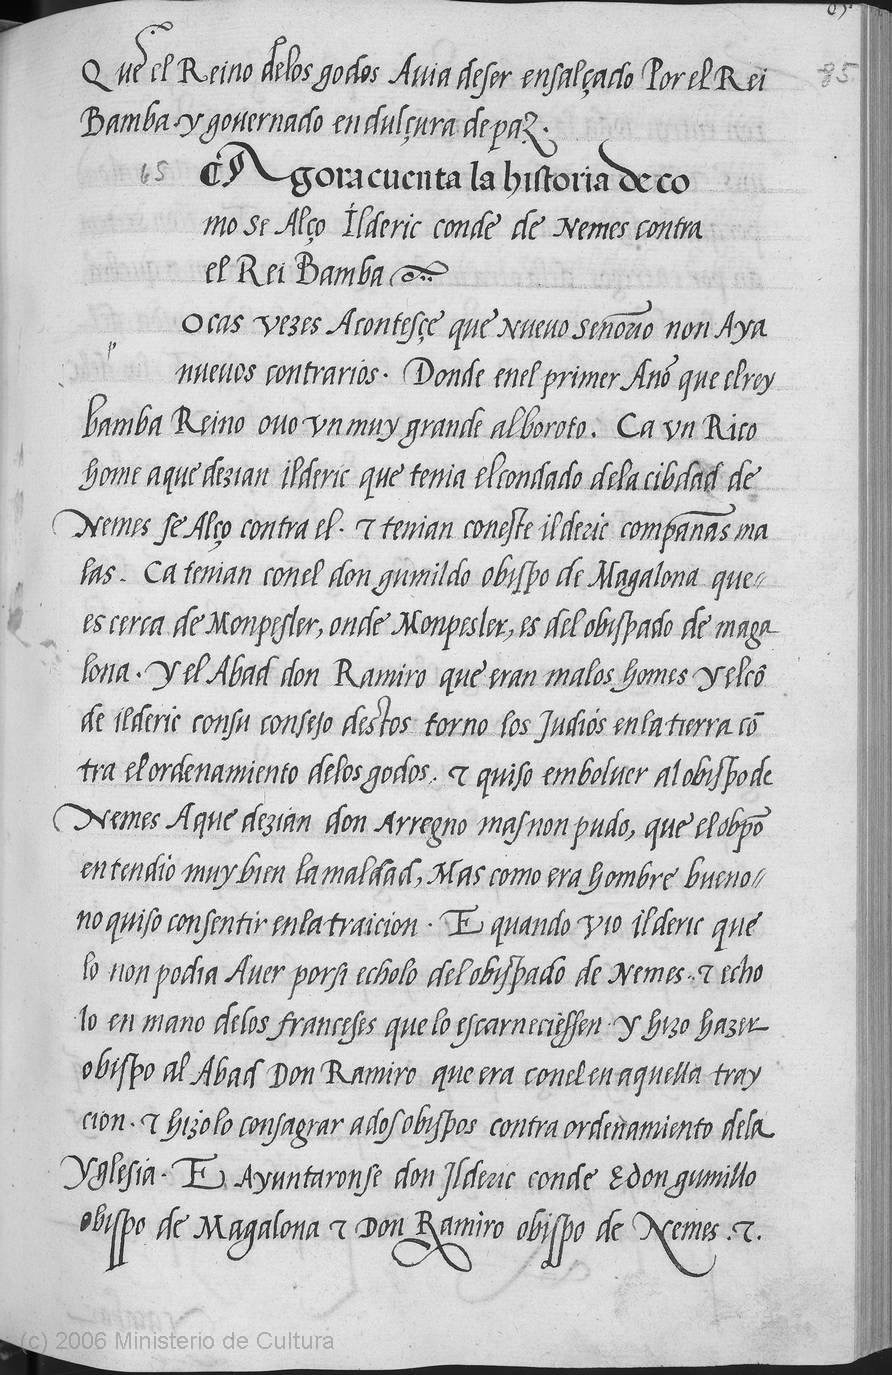 85
Que el Reino delos godos Auia deser ensalçado Por el Rei
Bamba. y gouernado en dulçura de paz.
65 Agora cuenta la historia de co
mo se Alço Ílderic conde de Nemes contra
el Rei Bamba
Ocas vezes Acontesçe que Nueuo señorio non Aya
nueuos contrarios. Donde enel primer Año que el rey
bamba Reino ouo vn muy grande alboroto. Ca vn Rico
home aque dezian ilderic que tenia el condado dela cibdad de
Nemes se Alço contra el. ⁊ tenian coneste ilderic compañas ma
las. Ca tenian conel don gumildo obispo de Magalona que〃
es cerca de Monpesler, onde Monpesler, es del obispado de maga
lona. Y el Abad don Ramiro que eran malos homes Y el cõ
de ilderic consu consejo destos torno los Judiós en la tierra cõ
tra el ordenamiento delos godos. ⁊ quiso emboluer al obispo de
Nemes Aque dezian don Arregno mas non pudo, que el obpõ
entendió muy bien la maldad, Mas como era hombre bueno〃
no quiso consentir en la traicion. E quando vio ilderic que
lo non podia Auer por si echolo del obispado de Nemes. ⁊ echo
lo en mano delos franceses que lo escarneciessen y hizo hazer
obispo al Abad Don Ramiro que era conel en aquella tray
cion. ⁊ hizolo consagrar a dos obispos contra ordenamiento dela
Yglesia. E Ayuntaronse don Ilderic conde & don gumillo
obispo de Magalona ⁊ Don Ramiro obispo de Nemes. ⁊.
(c) 2006 Ministerio de Cultura